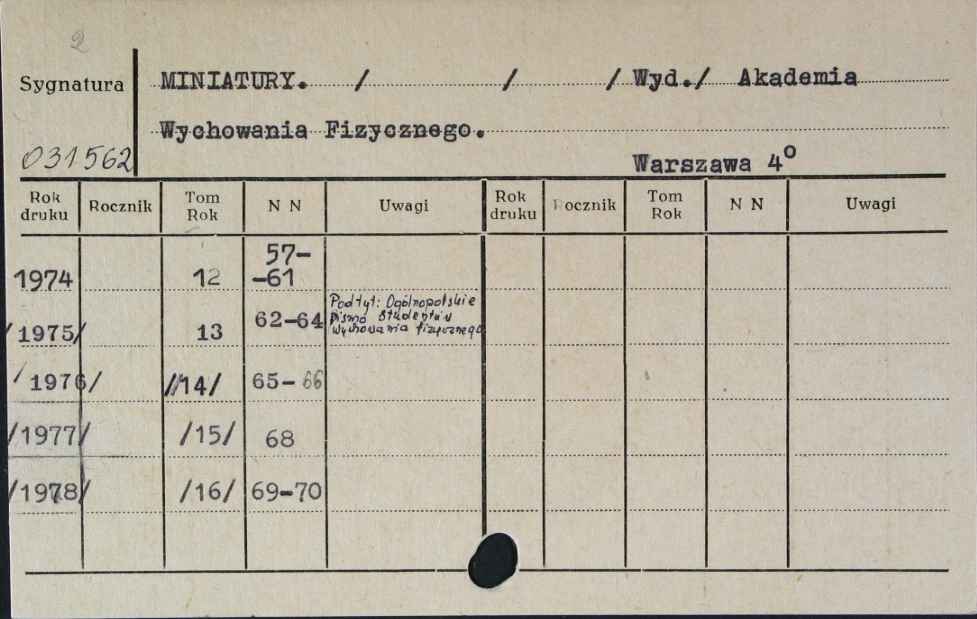 2
Sygnatura MINIATURY. / / / Wyd./ Akademia
Wychowania Fizycznego.
031562 Warszawa 4°
Rok druku Rocznik Tom Rok N N Uwagi Rok druku Rocznik Tom Rok N N Uwagi
1974 12 57--61
/1975/ 13 62-64 Podtyt: Ogólnopolskie
pismo studentów
wychowania fizycznego
/1976/ //14/ 65-66
/1977/ /15/ 68
/1978/ /16/ 69-70